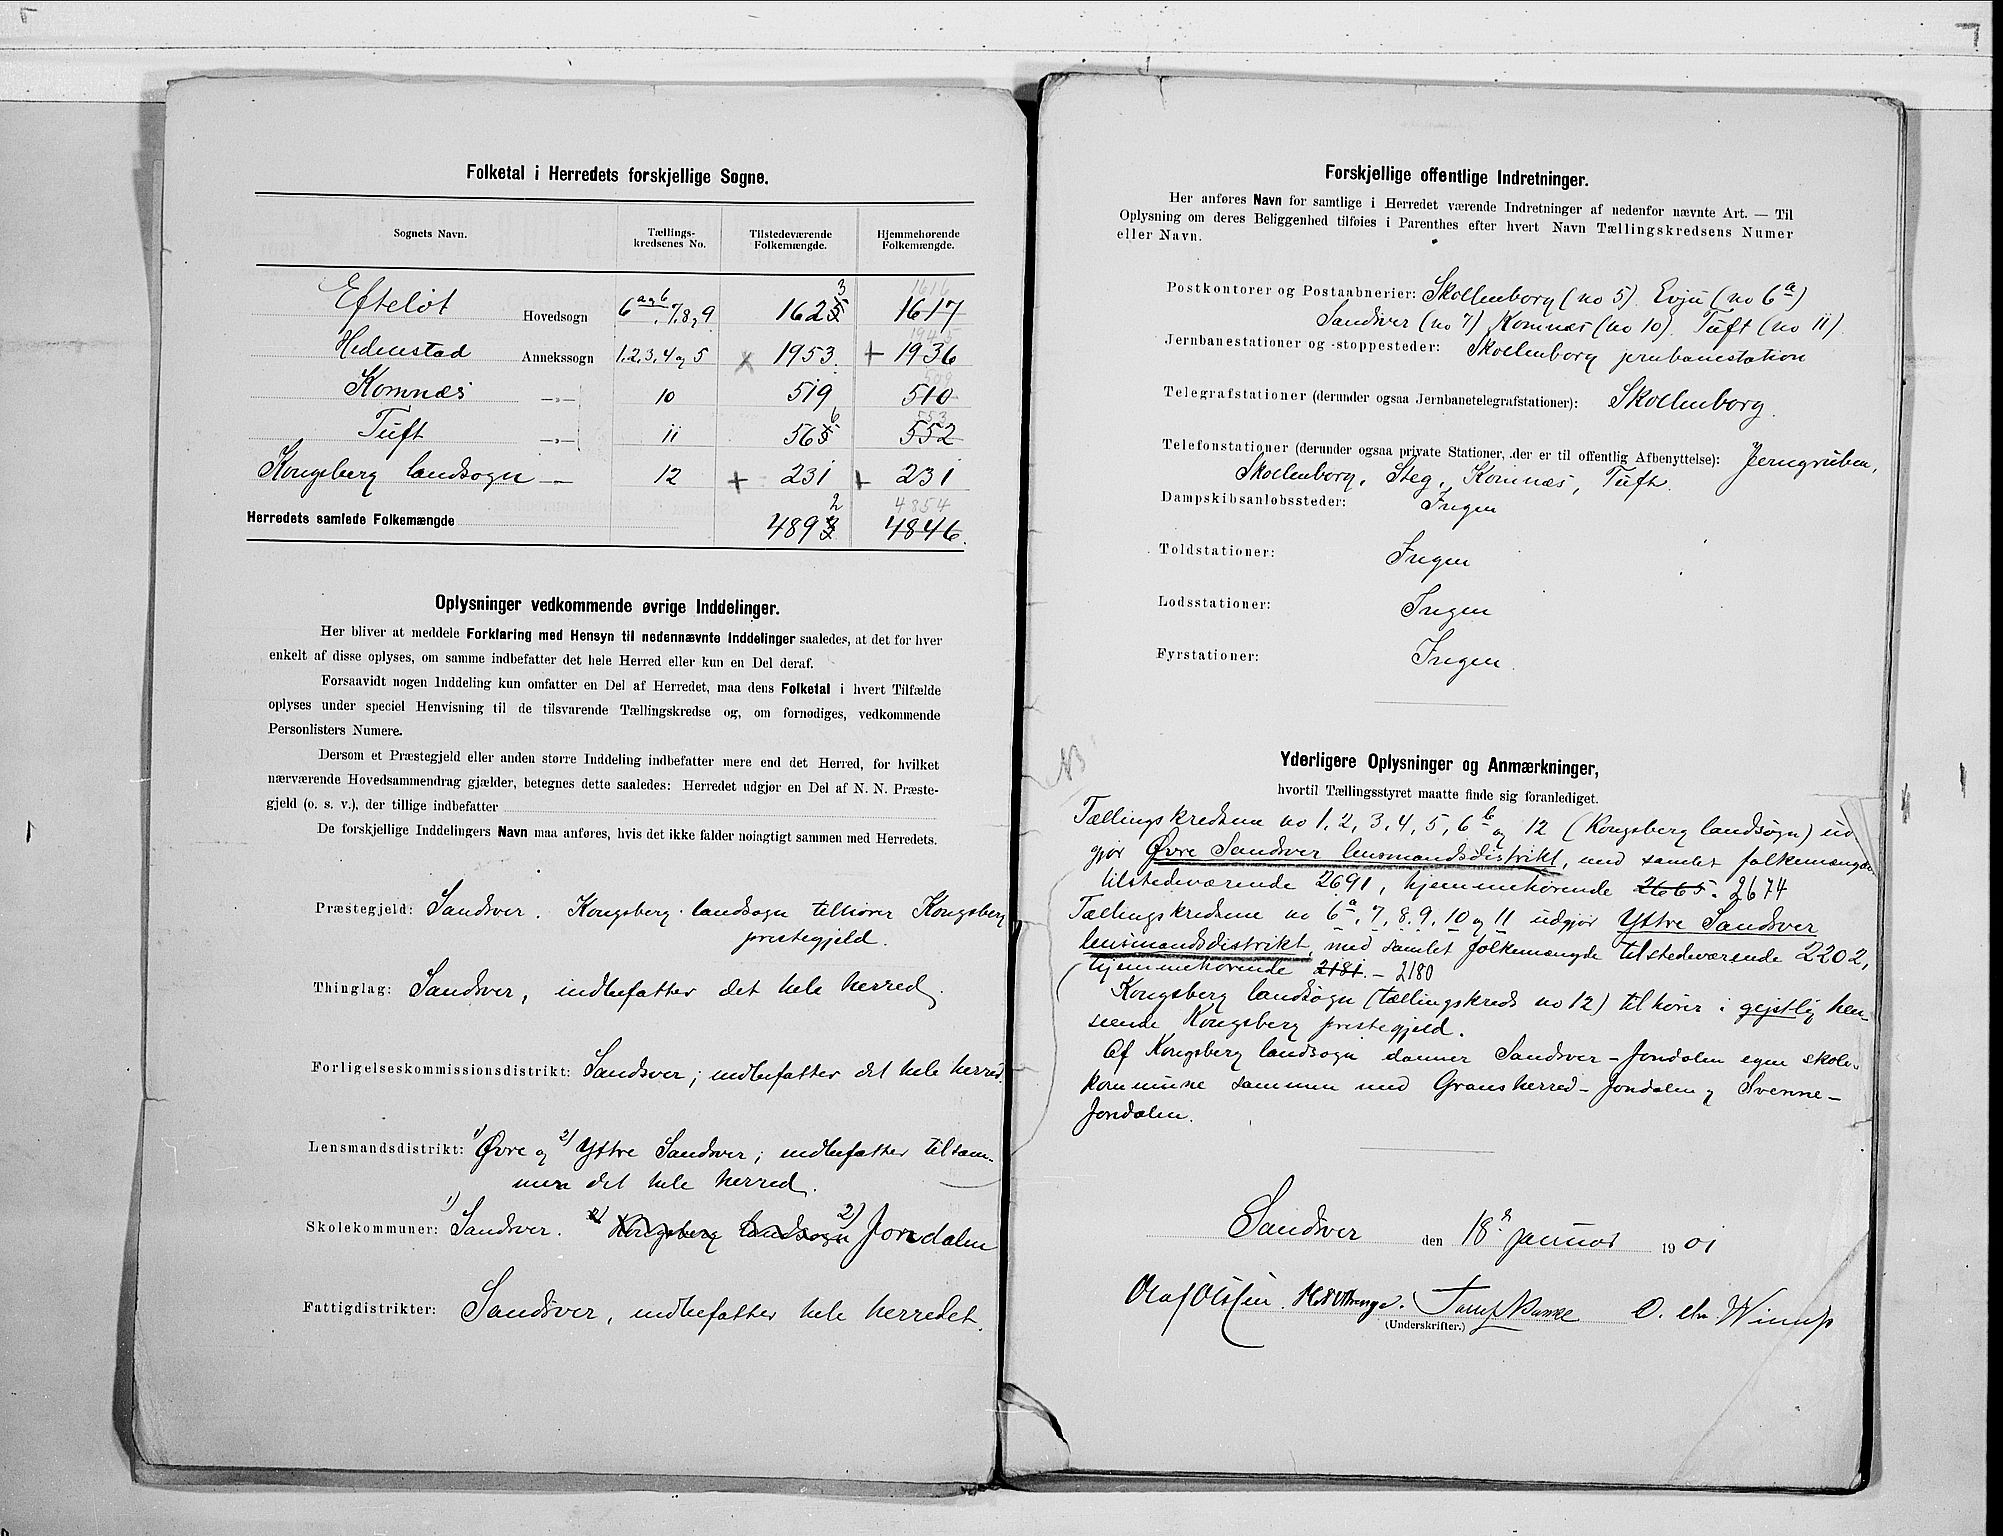 Folketal i Herredets forskjellige Sogne.
Sognets Navn. Tællings-kredsenes No. Tilstedeværende Folkemængde. Hjemmehørende Folkemængde.
3 1616
Efteløt Hovedsogn 6 a og b, 7, 8 og 9 1625 1617
Hedenstad Annekssogn 1, 2, 3, 4 og 5 x 1953 + 1936
Komnæs —„— 10 519 510
6 553
Tuft —„— 11 565 552
Kongsberg landsogn — 12 + 231 + 231
2 4854
Herredets samlede Folkemængde 4893 4846.
Oplysninger vedkommende øvrige Inddelinger.
Her bliver at meddele Forklaring med Hensyn til nedennævnte Inddelinger saaledes, at det for hver
enkelt af disse oplyses, om samme indbefatter det hele Herred eller kun en Del deraf.
Forsaavidt nogen Inddeling kun omfatter en Del af Herredet, maa dens Folketal i hvert Tilfælde
oplyses under speciel Henvisning til de tilsvarende Tællingskredse og, om fornødiges, vedkommende
Personlisters Numere.
Dersom et Præstegjeld eller anden større Inddeling indbefatter mere end det Herred, for hvilket
nærværende Hovedsammendrag gjælder, betegnes dette saaledes: Herredet udgjør en Del af N. N. Præste-
gjeld (o. s. v.), der tillige indbefatter
De forskjellige Inddelingers Navn maa anføres, hvis det ikke falder nøiagtigt sammen med Herredets.
Præstegjeld: Sandsver. Kongsberg landsogn tilhører Kongsberg
prestegjeld.
Thinglag: Sandsver, indbefatter det hele herred.
Forligelseskommissionsdistrikt: Sandsver; indbefatter det hele herred.
Lensmandsdistrikt: 1) Øvre og 2) Yttre Sandsver; indbefatter tilsam-
men det hele herred.
Skolekommuner: 1) Sandsver. 2) Kongsberg landsogn 2) Jondalen
Fattigdistrikter: Sandsver, indbefatter hele herredet.
Forskjellige offentlige Indretninger.
Her anføres Navn for samtlige i Herredet værende Indretninger af nedenfor nævnte Art. — Til
Oplysning om deres Beliggenhed tilføies i Parenthes efter hvert Navn Tællingskredsens Numer
eller Navn.
Postkontorer og Postaabnerier: Skollenborg (no 5). Evju (no 6 a)
Sandsver (no 7) Komnæs (no 10). Tuft (no 11).
Jernbanestationer og -stoppesteder: Skollenborg jernbanestation
Telegrafstationer (derunder ogsaa Jernbanetelegrafstationer): Skollenborg.
Telefonstationer (derunder ogsaa private Stationer, der er til offentlig Afbenyttelse): Jerngruben,
Skollenborg, Steg, Komnæs, Tuft.
Dampskibsanløbssteder: Ingen
Toldstationer: Ingen
Lodsstationer: Ingen
Fyrstationer: Ingen.
NB
Yderligere Oplysninger og Anmærkninger,
hvortil Tællingsstyret maatte finde sig foranlediget.
Tællingskredsene no 1, 2, 3, 4, 5, 6 b og 12 (Kongsberg landsogn) ud
gjør Øvre Sandsver lensmandsdistrikt, med samlet folkemængde
tilstedeværende 2691, hjemmehørende 2665. 2674
Tællingskredsene no 6 a, 7, 8, 9, 10 og 11 udgjør Yttre Sandsver
lensmandsdistrikt, med samlet folkemængde tilstedeværende 2202,
hjemmehørende 2181. — 2180
Kongsberg landsogn (tællingskreds no 12) tilhører i gejstlig hen-
seende Kongsberg prestegjeld.
Af Kongsberg landsogn danner Sandsver-Jondalen egen skole-
kommune sammen med Gransherred-Jondalen og Svenne-
Jondalen.
Sandsver den 18de januar 1901
Olaf Olssen.
(Underskrifter.)